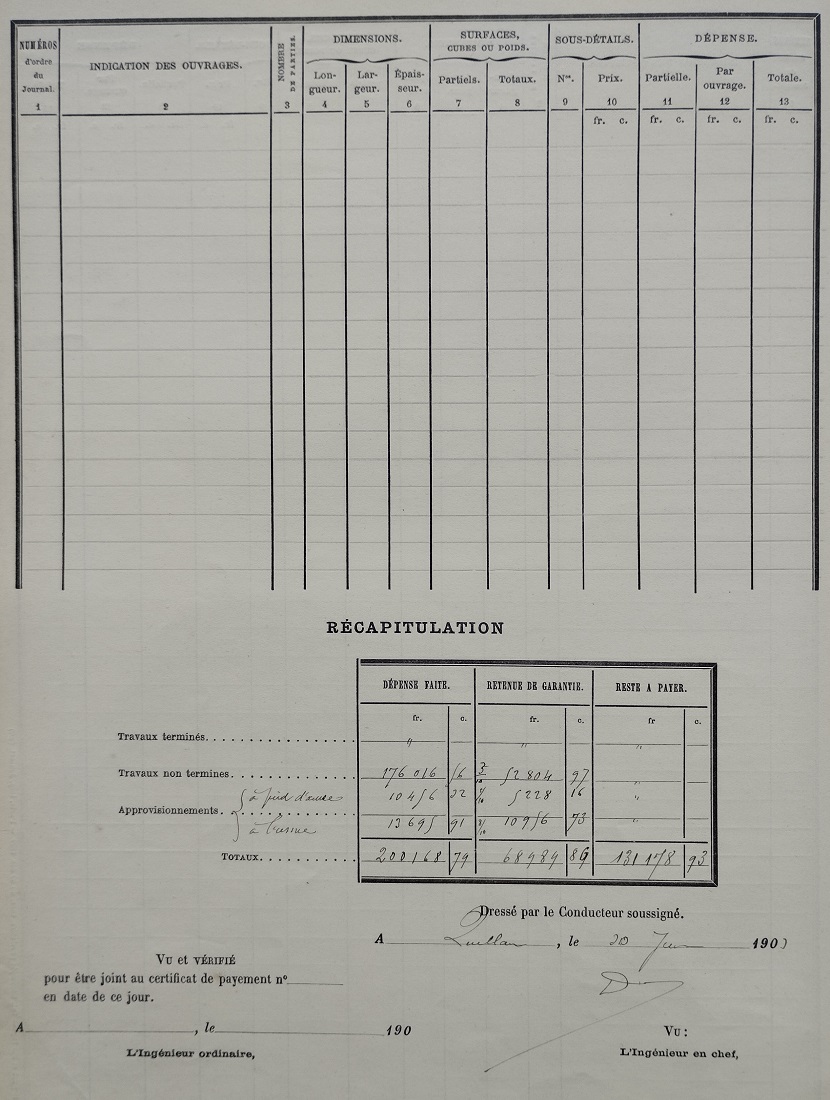 NUMÉROS
d'ordre
du
Journal.
1
INDICATION DES OUVRAGES.
2
NOMBRE
DE PARTIES.
3
DIMENSIONS.
Lon-
gueur.
4
Lar-
geur.
5
Épais-
seur.
6
SURFACES,
CUBES OU POIDS.
Partiels.
7
Totaux.
8
SOUS-DÉTAILS.
Nos.
9
Prix.
10
DÉPENSE.
Partielle.
11
Par
ouvrage.
12
Totale.
13
fr. c. fr. c. fr. c. fr. c.
RÉCAPITULATION
DÉPENSE FAITE. RETENUE DE GARANTIE. RESTE A PAYER.
fr. c. fr. c. fr c.
Travaux terminés. " " "
Travaux non termines. 176016 56 3/10 52804 97 "
Approvisionnements. à pied d'œuvre 10456 32 5/10 5228 16 "
à l'usine 13695 91 8/10 10956 73 "
TOTAUX. 200168 79 68989 86 131178 93
Dressé par le Conducteur soussigné.
A Quillan, le 30 Juin 1903
VU et VÉRIFIÉ
pour être joint au certificat de payement no
en date de ce jour.
A , le 190
L'Ingénieur ordinaire,
VU :
L'Ingénieur en chef,